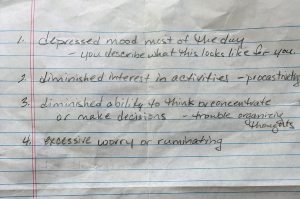 1. depressed mood most of the day
- you describe what this looks like for you.
2. diminished interest in activities - procrastinating
3. diminished ability to think or concentrate
or make decisions - trouble organizing
thoughts
4. excessive worry or ruminating